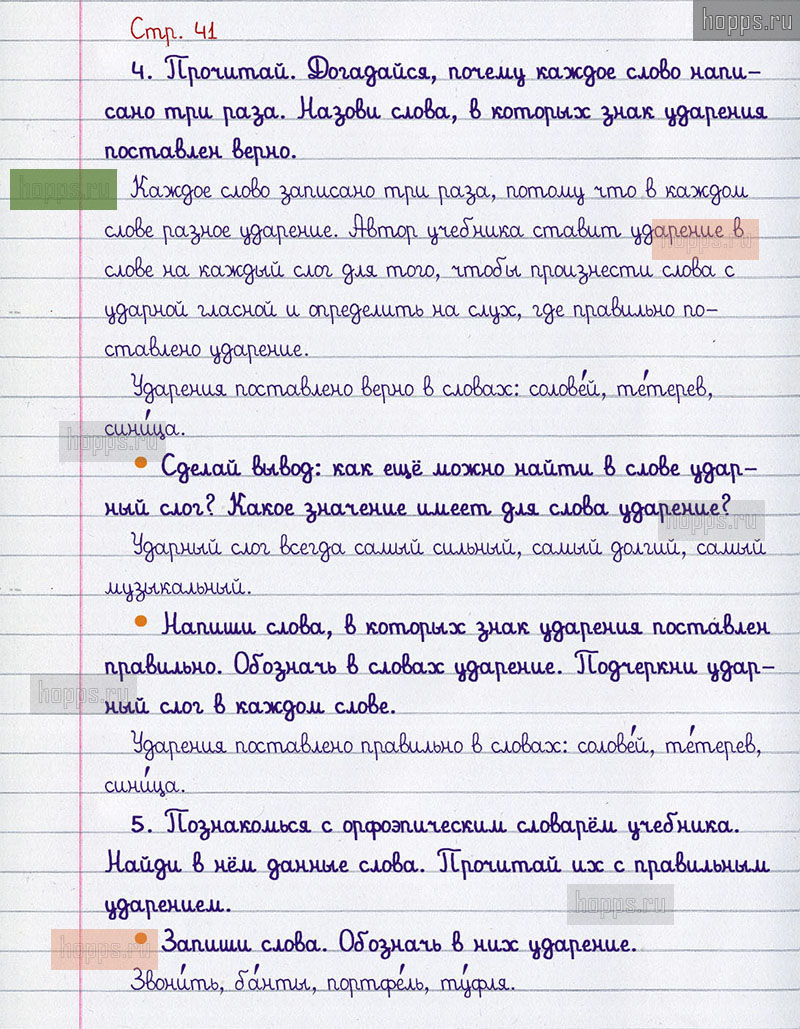 hopps.ru
Стр. 41
4. Прочитай. Догадайся, почему каждое слово напи-
сано три раза. Назови слова, в которых знак ударения
поставлен верно.
hopps.ru
Каждое слово записано три раза, потому что в каждом
слове разное ударение. Автор учебника ставит ударение в
hopps.ru
слове на каждый слог для того, чтобы произнести слова с
ударной гласной и определить на слух, где правильно по-
ставлено ударение.
Ударения поставлено верно в словах: солове́й, те́терев,
сини́ца.
hopps.ru
• Сделай вывод: как ещё можно найти в слове удар-
ный слог? Какое значение имеет для слова ударение?
hopps.ru
Ударный слог всегда самый сильный, самый долгий, самый
музыкальный.
• Напиши слова, в которых знак ударения поставлен
правильно. Обозначь в словах ударение. Подчеркни удар-
hopps.ru
ный слог в каждом слове.
Ударения поставлено правильно в словах: солове́й, те́терев,
сини́ца.
5. Познакомься с орфоэпическим словарём учебника.
Найди в нём данные слова. Прочитай их с правильным
ударением.
hopps.ru
• Запиши слова. Обозначь в них ударение.
hopps.ru
Звони́ть, ба́нты, портфе́ль, ту́фля.